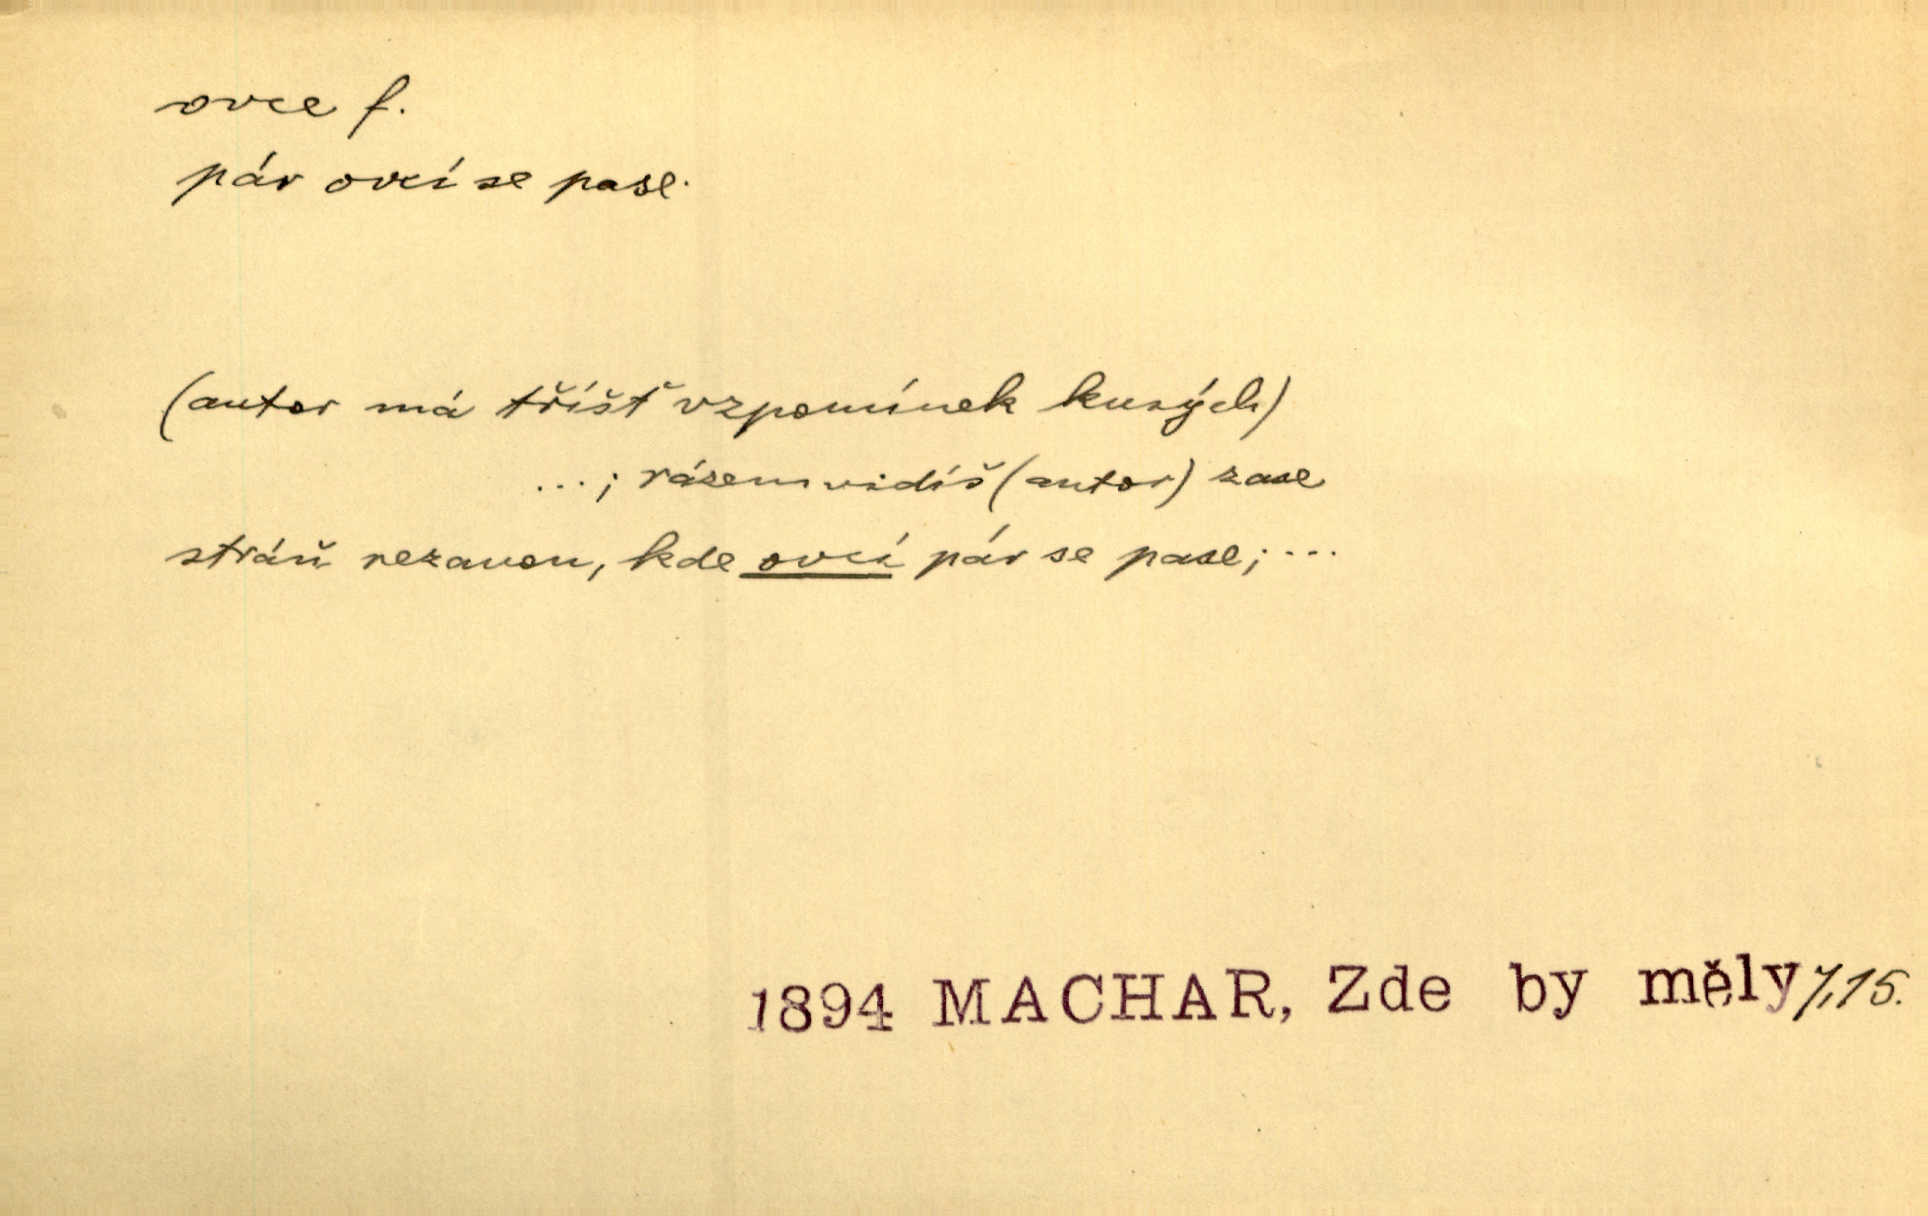 ovce f.
pár ovcí se pase.
(autor má tříšť vzpomínek kusých)
...; rázem vidíš (autor) zase
stráň rezavou, kde ovcí pár se pase; ...
1894 MACHAR, Zde by měly /,15.